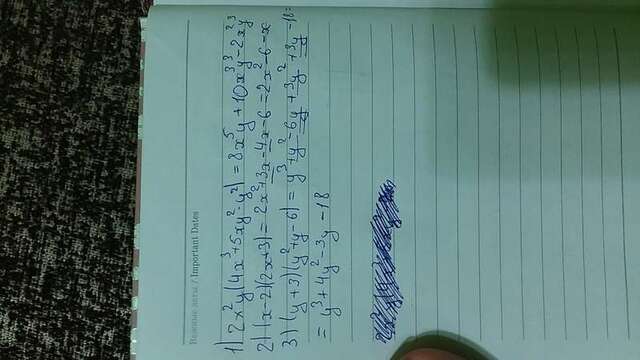 Важные даты / Important Dates
1) 2x²y(4x³+5xy²-y²) = 8x⁵y + 10x³y³ - 2x²y³
2) (x-2)(2x+3) = 2x²+3x-4x-6 = 2x²-6-x
3) (y+3)(y²+y-6) = y³+y²-6y+3y²+3y-18=
= y³+4y²-3y-18